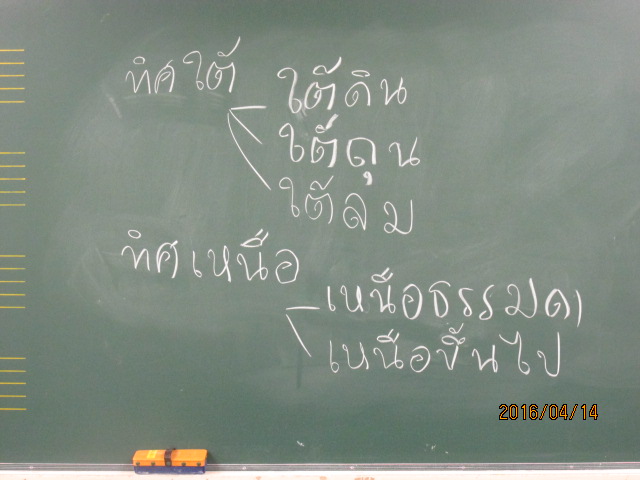 ทิศใต้
ใต้ดิน
ใต้ถุน
ใต้ลม
ทิศเหนือ
เหนือธรรมดา
เหนือขึ้นไป
2016/04/14